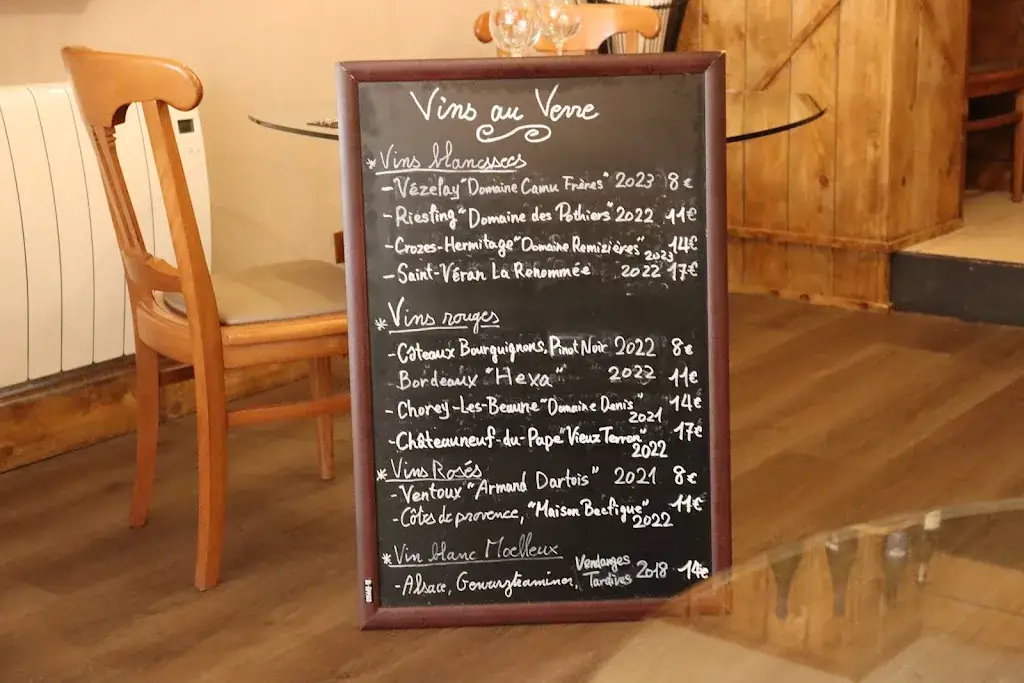 Vins au Verre
* Vins blancs secs
- Vézelay "Domaine Camu Frères" 2023 8€
- Riesling "Domaine des Pothiers" 2022 11€
- Crozes-Hermitage "Domaine Remizières" 2023 14€
- Saint-Véran La Renommée 2022 17€
* Vins rouges
- Côteaux Bourguignons, Pinot Noir 2022 8€
- Bordeaux "Hexa" 2022 11€
- Chorey-Les-Beaune "Domaine Denis" 2021 14€
- Châteauneuf-du-Pape "Vieux Terron" 2022 17€
* Vins Rosés
- Ventoux "Armand Dartois" 2021 8€
- Côtes de provence, "Maison Becfigue" 2022 11€
* Vin blanc Moelleux
- Alsace, Gewurztraminer, Vendanges Tardives 2018 14€